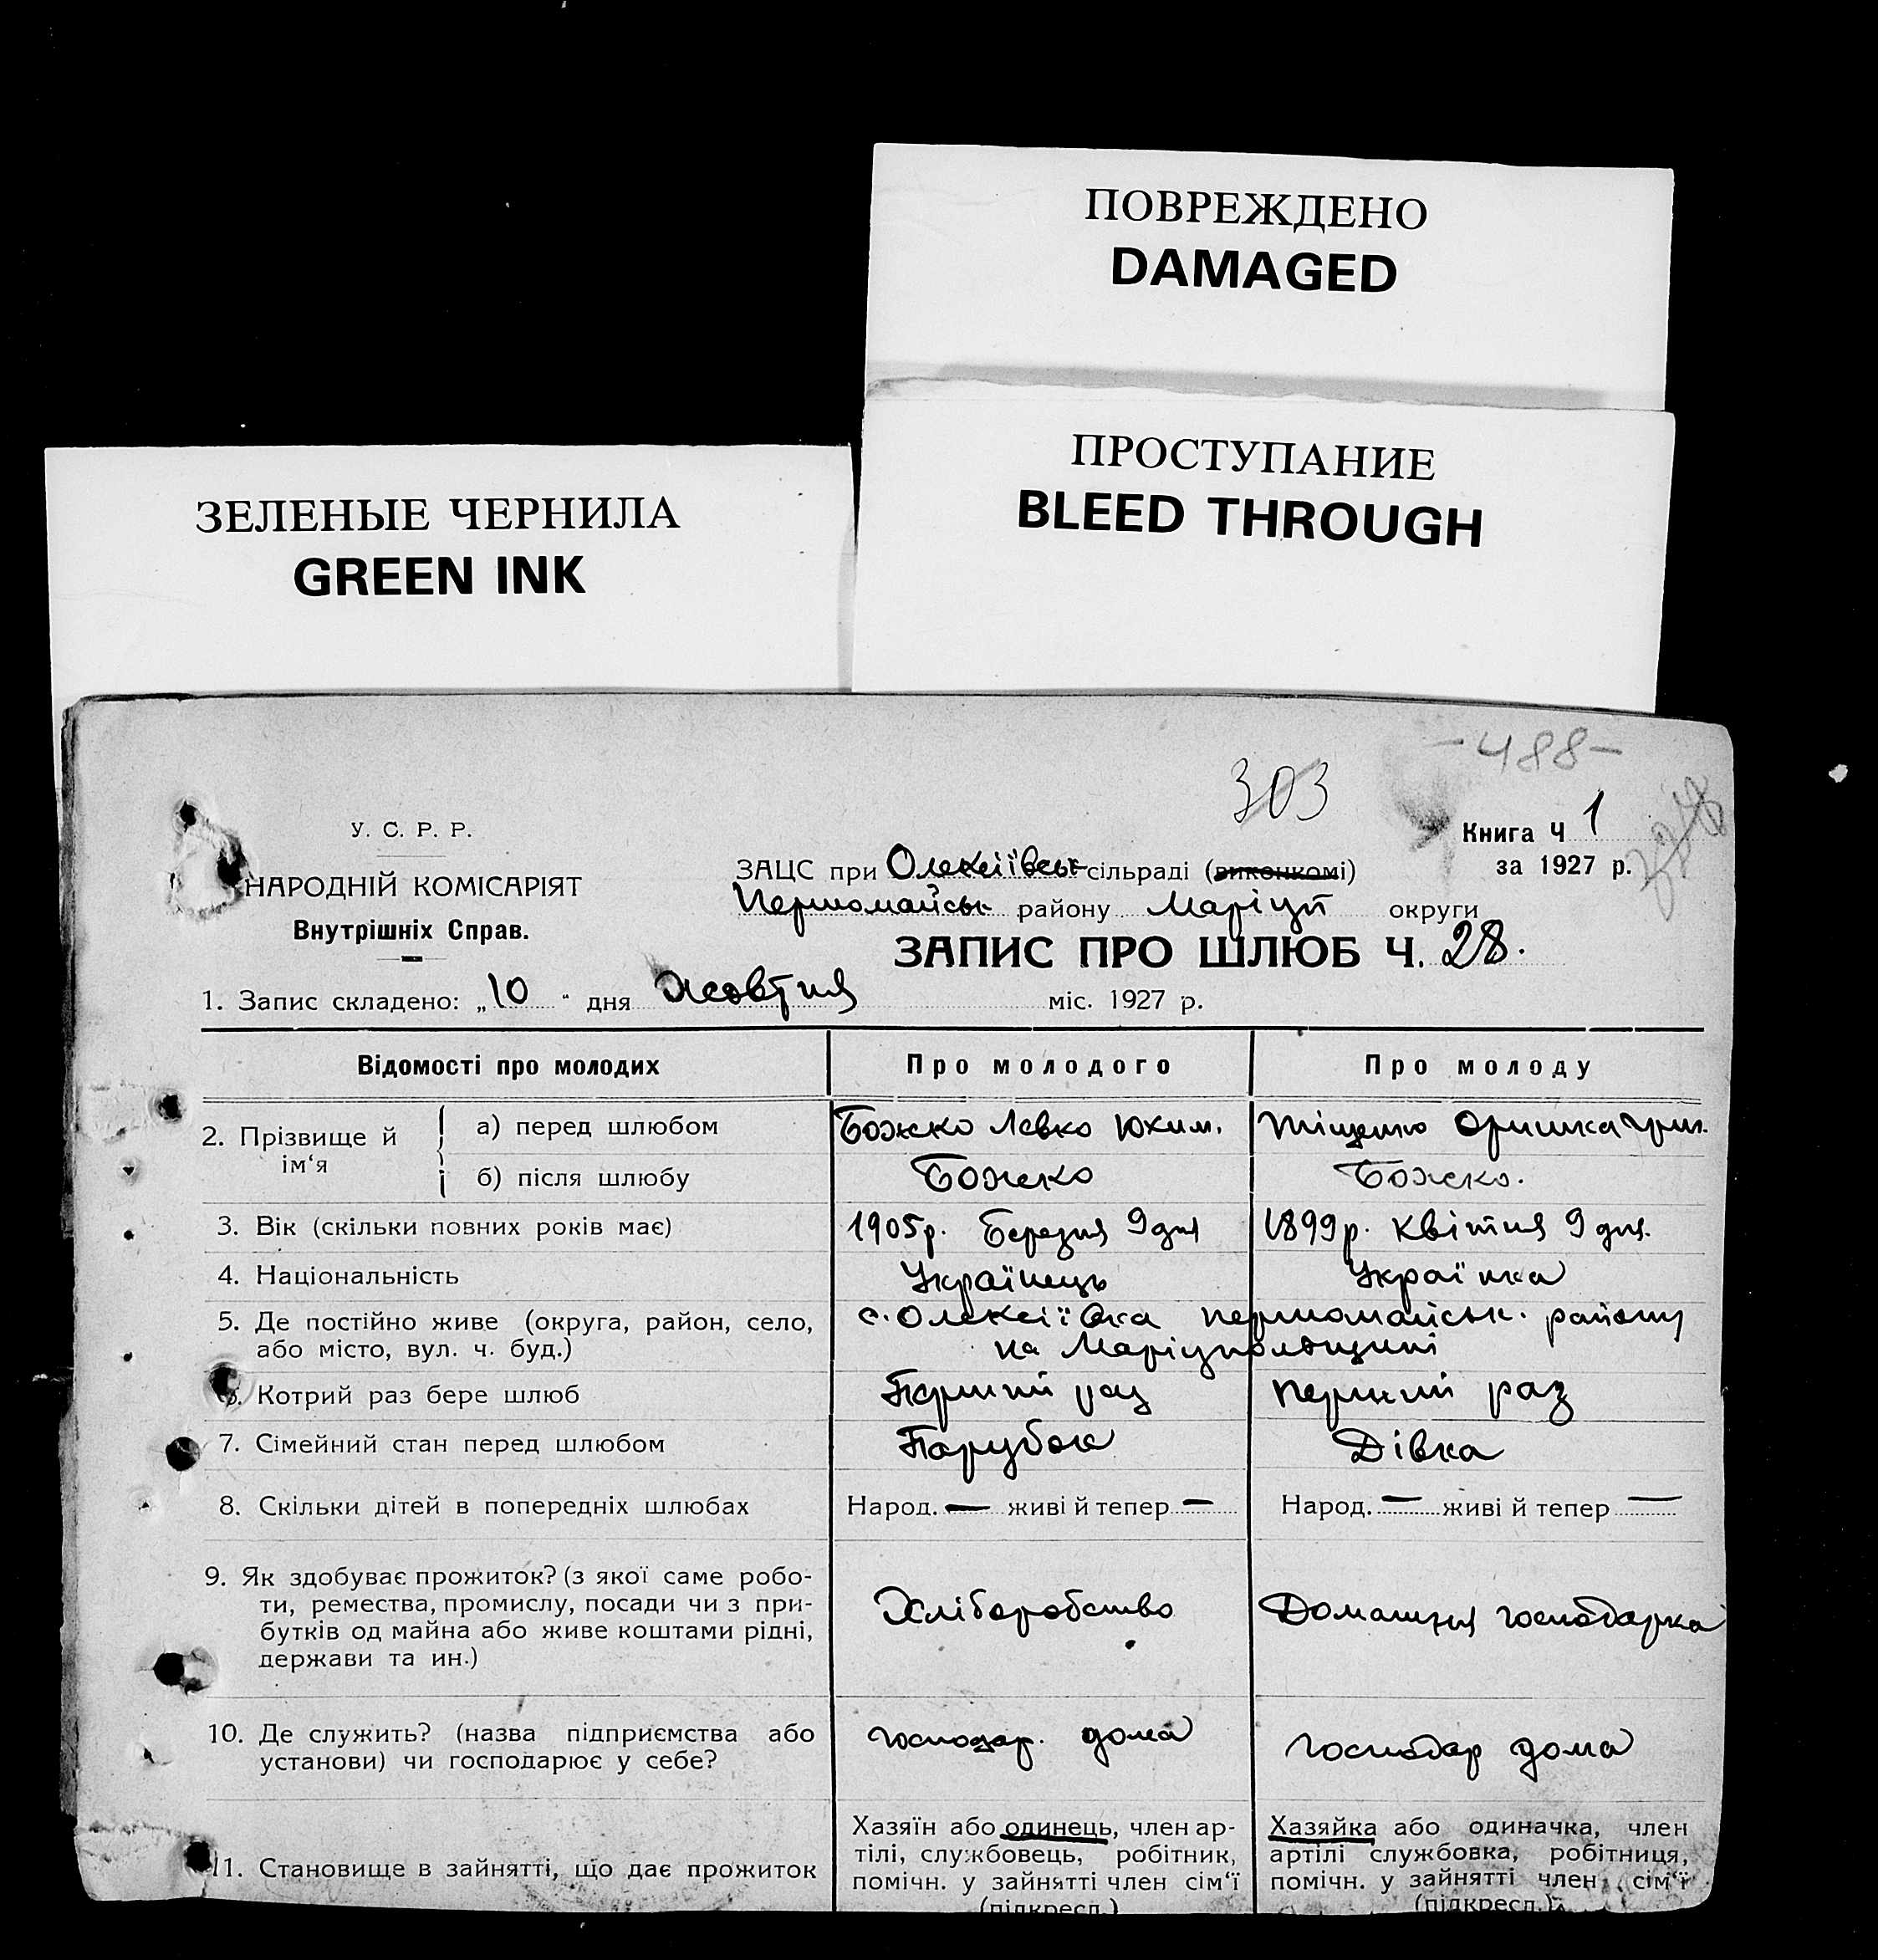 ПОВРЕЖДЕНО
DAMAGED
ПРОСТУПАНИЕ
BLEED THROUGH
ЗЕЛЕНЫЕ ЧЕРНИЛА
GREEN INK
-488-
303
Книга Ч 1
за 1927 р.
У. С. Р. Р.
НАРОДНІЙ КОМІСАРІЯТ
Внутрішніх Справ.
ЗАЦС при Олексіївськ сільраді (виконкомі)
Першомайськ району Маріуп округи
ЗАПИС ПРО ШЛЮБ Ч. 28.
1. Запис складено: „10" дня жовтня міс. 1927 р.
Відомості про молодих
Про молодого
Про молоду
2. Прізвище й ім'я
а) перед шлюбом
Божко Левко Юхим.
Оришка Григ.
б) після шлюбу
Божко
Божко.
3. Вік (скільки повних років має)
1905р. Березня 9 дня
1899р. Квітня 9 дня.
4. Національність
Українець
Українка
5. Де постійно живе (округа, район, село,
або місто, вул. ч. буд.)
с. Олексіївка першомайськ. району
на Маріупольщині
6. Котрий раз бере шлюб
Перший раз
перший раз
7. Сімейний стан перед шлюбом
Парубок
Дівка
8. Скільки дітей в попередніх шлюбах
Народ. — живі й тепер —
Народ. — живі й тепер —
9. Як здобуває прожиток? (з якої саме робо-
ти, ремества, промислу, посади чи з при-
бутків од майна або живе коштами рідні,
держави та ин.)
Хліборобство
Домашня господарка
10. Де служить? (назва підприємства або
установи) чи господарює у себе?
господар. дома
господар дома
11. Становище в зайнятті, що дає прожиток
Хазяїн або одинець, член ар-
тілі, службовець, робітник,
помічн. у зайнятті член сім'ї
(підкресл.)
Хазяйка або одиначка, член
артілі службовка, робітниця,
помічн. у зайнятті член сім'ї
(підкресл.)